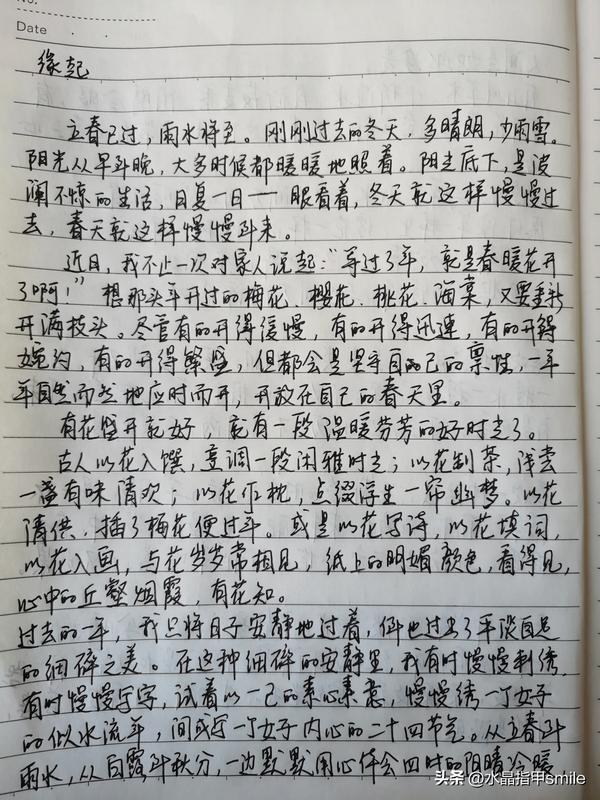 No.
Date
缘起
立春已过，雨水将至。刚刚过去的冬天，多晴朗，少雨雪。
阳光从早到晚，大多时候都暖暖地照着。阳光底下，是波
澜不惊的生活，日复一日——眼看着，冬天就这样慢慢过
去，春天就这样慢慢到来。
近日，我不止一次对家人说起："等过了年，就是春暖花开
了啊！"想那头年开过的梅花、樱花、桃花、海棠，又要重新
开满枝头。尽管有的开得缓慢，有的开得迅速，有的开得
婉约，有的开得繁盛，但都会是坚守自己的禀性，一年
年自然而然地应时而开，开放在自己的春天里。
有花盛开就好，就有一段温暖芬芳的好时光了。
古人以花入馔，烹调一段闲雅时光；以花制茶，浅尝
一盏有味清欢；以花作枕，点缀浮生一帘幽梦。以花
清供，插了梅花便过年。或是以花写诗，以花填词，
以花入画，与花岁岁常相见，纸上的明媚颜色，看得见，
心中的丘壑烟霞，有花知。
过去的一年，我只将日子安静地过着，倒也过出了平淡自足
的细碎之美。在这种细碎的安静里，我有时慢慢刺绣，
有时慢慢写字，试着以一己的素心素意，慢慢绣一个女子
的似水流年，间或写一个女子内心的二十四节气。从立春到
雨水，从白露到秋分，一边默默用心体会四时的阴晴冷暖，
头条 @水晶指甲smile